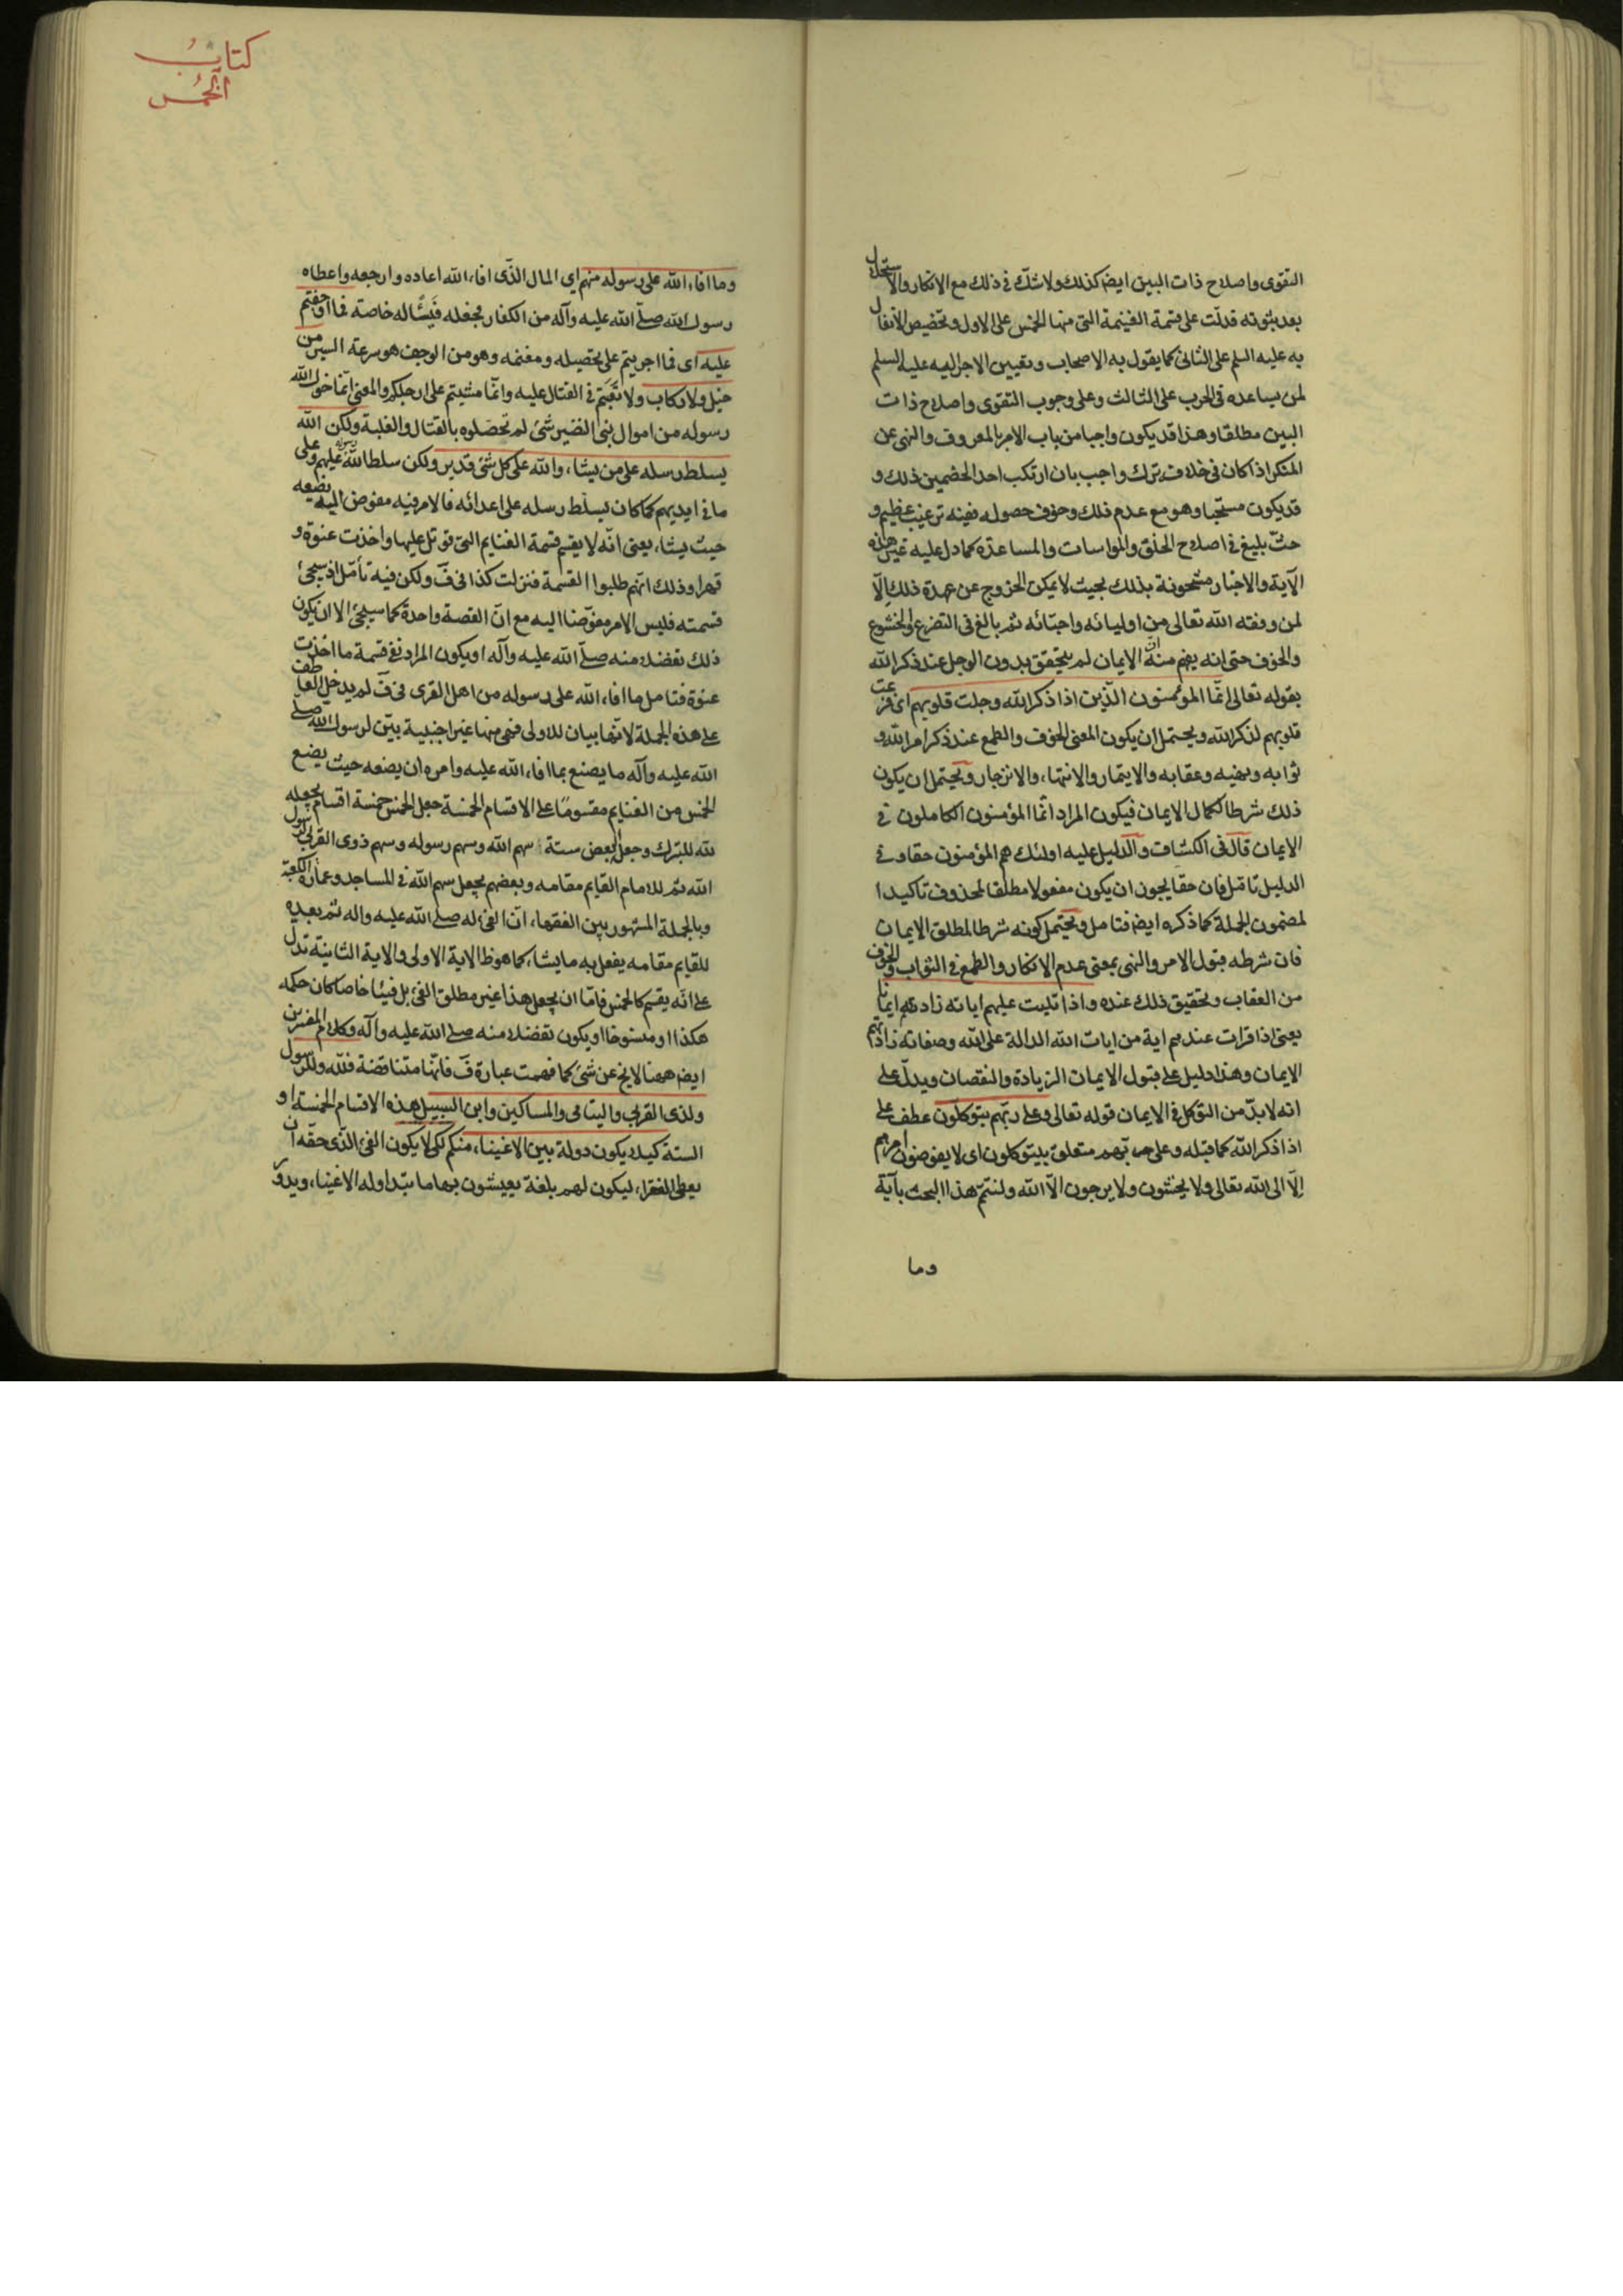 التقوى واصلاح ذات البين ايضا كذلك ولا شك فى ذلك مع الانكار والاستحلال
بعد ثبوته قد دلت على قسمة الغنيمة التى منها الخمس على الاول وتخصيص الانفال
به عليه السلم على الثانى كما يقول به الاصحاب وتعيين الاجر اليه عليه السلم
لمن يساعده فى الحرب على الثالث وعلى وجوب التقوى واصلاح ذات
البين مطلقا وهذا قد يكون واجبا من باب الامر بالمعروف والنهى عن
المنكر اذا كان فى خلافه ترك واجب بان ارتكب احد الخصمين ذلك و
قد يكون مستحبا وهو مع عدم ذلك وخوف حصوله ففيه ترغيب عظيم و
حث بليغ فى اصلاح الخلق والمواسات والمساعدة كما دل عليه غير هذه
الآية والاخبار مشحونة بذلك بحيث لا يمكن الخروج عن عهدة ذلك الّا
لمن وفقه الله تعالى من اوليائه واحبّائه ثم بالغ فى التضرع والخشوع
والخوف حتى انه يفهم منه ان الايمان لم يتحقق بدون الوجل عند ذكر الله
بقوله تعالى انّما المؤمنون الّذين اذا ذكر الله وجلت قلوبهم اى فزعت
قلوبهم لذكر الله ويحتمل ان يكون المعنى الخوف والطمع عند ذكر امر الله و
ثوابه ونهيه وعقابه والايتمار والانتهاء والانزجار ويحتمل ان يكون
ذلك شرطا لكمال الايمان فيكون المراد انّما المؤمنون الكاملون فى
الايمان قال فى الكشاف والدليل عليه اولئك هم المؤمنون حقا وفى
الدليل تامّل فان حقا يجوز ان يكون مفعولا مطلقا لمحذوف تاكيدا
لمضمون الجملة كما ذكره ايضا فتامل ويحتمل كونه شرطا لمطلق الايمان
فان شرطه قبول الامر والنهى بمعنى عدم الانكار والطمع فى الثواب والخوف
من العقاب وتحقيق ذلك عنده واذا تليت عليهم اياته زادتهم ايمانا
يعنى اذا قرات عندهم اية من ايات الله الدالة على الله وصفاته زادتهم
الايمان وهذا دليل على قبول الايمان الزيادة والنقصان ويدلّ على
انه لا بدّ من التوكل فى الايمان قوله تعالى وعلى ربّهم يتوكلون عطف على
اذا ذكر الله كما قبله وعلى ربّهم متعلق بيتوكلون اى لا يفوضون امرهم
الّا الى الله تعالى ولا يخشون ولا يرجون الّا الله ولنتمّ هذا البحث بآية
وما
كتابُ
الخمُس
وما افاء الله على رسوله منهم اى المال الّذى افاء الله اعاده وارجعه واعطاه
رسول الله صلّى الله عليه وآله من الكفار فجعله فيئًا له خاصة فما اوجفتم
عليه اى فما اجريتم على تحصيله ومغنمه وهو من الوجف هو سرعة السير من
خيل ولا ركاب ولا تعبتم فى القتال عليه وانّما مشيتم على ارجلكم والمعنى انّما خول الله
رسوله من اموال بنى النضير شئ لم تحصّلوه بالقتال والغلبة ولكن الله
يسلط رسله على من يشاء والله على كل شئ قدير ولكن سلط الله رسوله عليهم وعلى
ما فى ايديهم كما كان يسلّط رسله على اعدائه فالامر فيه مفوض اليه يضعه
حيث يشاء يعنى انّه لا يقسم قسمة الغنايم التى قوتل عليها واخذت عنوة و
قهرا وذلك انّهم طلبوا القسمة فنزلت كذا فى ف ولكن فيه تأمّل اذ سيجئ
قسمته فليس الامر مفوّضا اليه مع انّ القصة واحدة كما سيجئ الا ان يكون
ذلك تفضلا منه صلّى الله عليه وآله او يكون المراد نفى قسمة ما اخذت
عنوة فتامل ما افاء الله على رسوله من اهل القرى فى ف لم يدخل العاطف
على هذه الجملة لانّها بيان للاولى فهى منها غير اجنبية بيّن لرسول الله صلى
الله عليه وآله ما يصنع بما افاء الله عليه وامره ان يضعه حيث يضع
الخمس من الغنايم مقسومًا على الاقسام الخمسة جعل الخمس خمسة اقسام بجعله
لله للتبرك وجعل البعض ستة سهم الله وسهم رسوله وسهم ذوى القربى لرسول
الله ثم للامام القايم مقامه وبعضهم يجعل سهم الله فى المساجد وعمارة الكعبة
وبالجملة المشهور بين الفقهاء انّ الفئ له صلى الله عليه واله ثم بعده
للقايم مقامه يفعل به ما يشاء كما هو ظ الاية الاولى والاية الثانية تدل
على انّه يقسم كالخمس فامّا ان يجعل هذا غير مطلق الفئ بل فيئا خاصا كان حكمه
هكذا او منسوخا او يكون تفضلا منه صلى الله عليه وآله وكلام المفسرين
ايضا ههنا لا يخ عن شئ كما فهمت عبارة ف فانّها متناقضة فلله وللرسول
ولذى القربى واليتامى والمساكين وابن السبيل هذه الاقسام الخمسة او
الستة كيلا يكون دولة بين الاغنياء منكم لكى لا يكون الفئ الّذى حقّه ان
يعطى الفقراء ليكون لهم بلغة يعيشون بها ما يتداوله الاغنياء ويدور